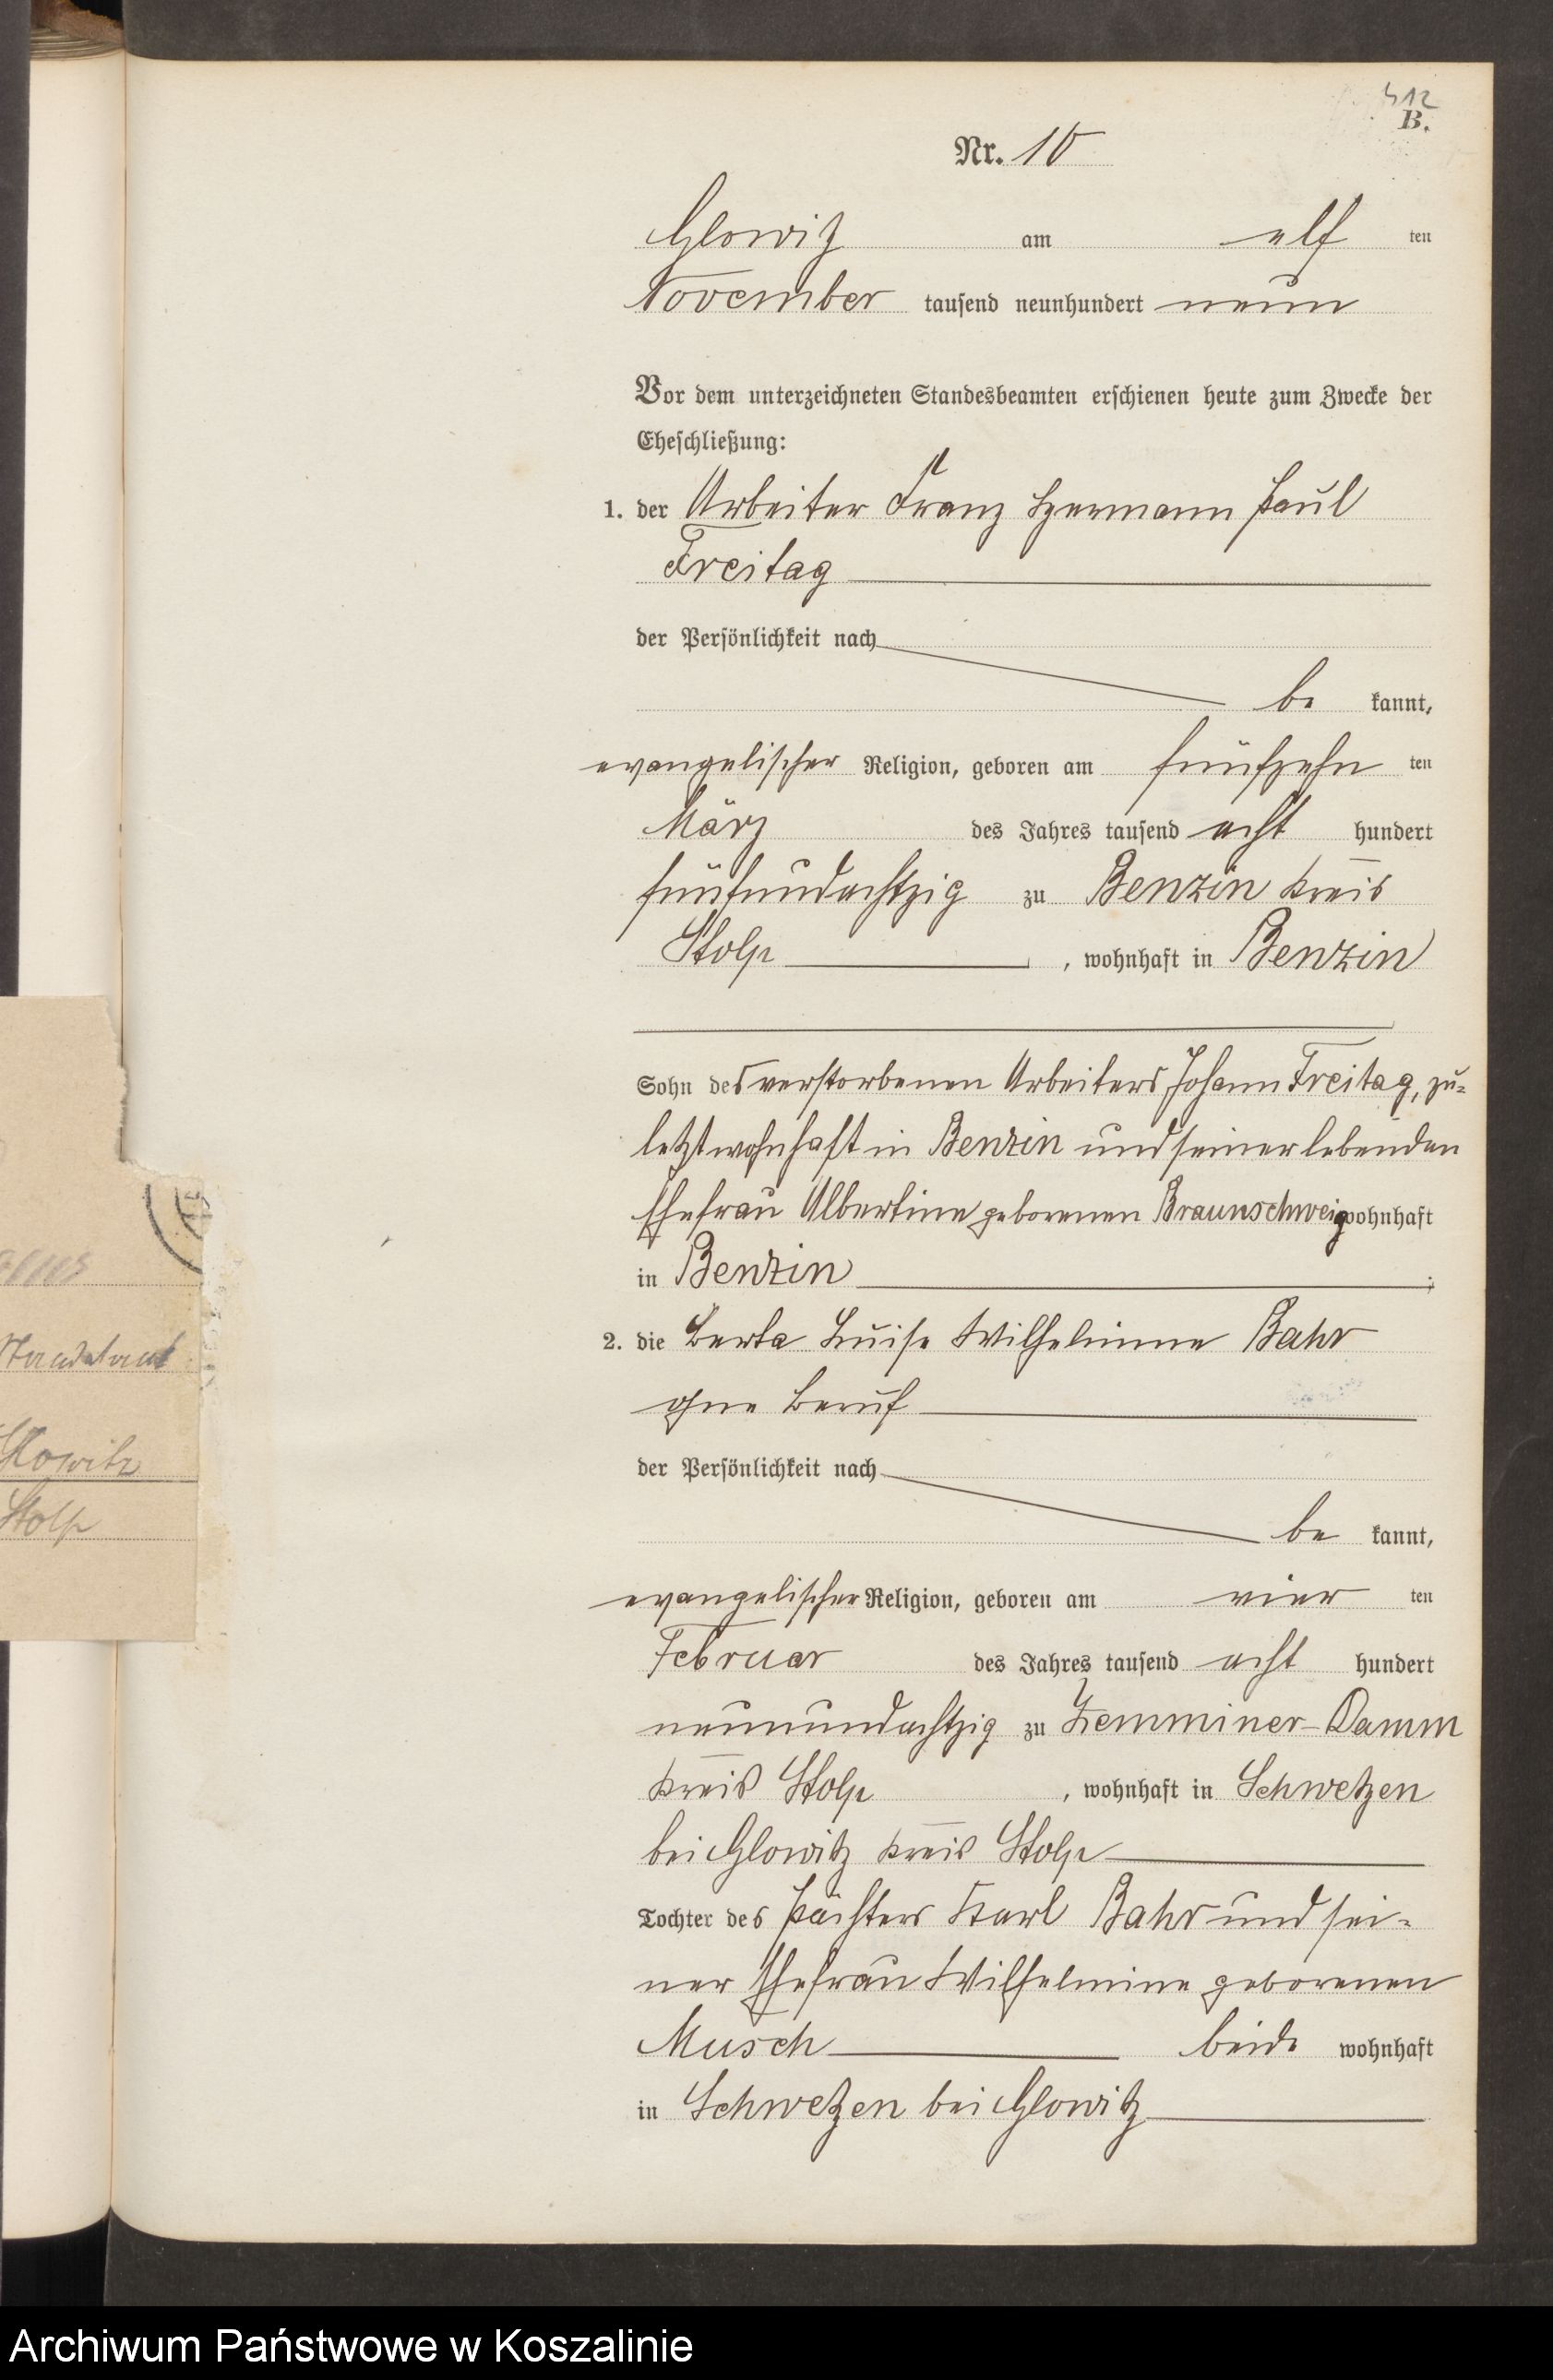 512
B.
Nr. 10
Glowitz am elf ten
November tausend neunhundert neun
Vor dem unterzeichneten Standesbeamten erschienen heute zum Zwecke der
Eheschließung:
1. der Arbeiter Franz Hermann Paul
Freitag
der Persönlichkeit nach
be kannt,
evangelischer Religion, geboren am fünfzehn ten
März des Jahres tausend acht hundert
fünfundachtzig zu Benzin Kreis
Stolp , wohnhaft in Benzin
Sohn des verstorbenen Arbeiters Johann Freitag, zu-
letzt wohnhaft in Benzin und seiner lebenden
Ehefrau Albertine geborenen Braunschweig wohnhaft
in Benzin ;
2. die Berta Luise Wilhelmine Bahr
ohne Beruf
der Persönlichkeit nach
be kannt,
evangelischer Religion, geboren am vier ten
Februar des Jahres tausend acht hundert
neunundachtzig zu Zemminer-Damm
Kreis Stolp , wohnhaft in Schwetzen
bei Glowitz Kreis Stolp
Tochter des Pächters Karl Bahr und sei-
ner Ehefrau Wilhelmine geborenen
Musch beide wohnhaft
in Schwetzen bei Glowitz
Glowitz
Stolp
Archiwum Państwowe w Koszalinie